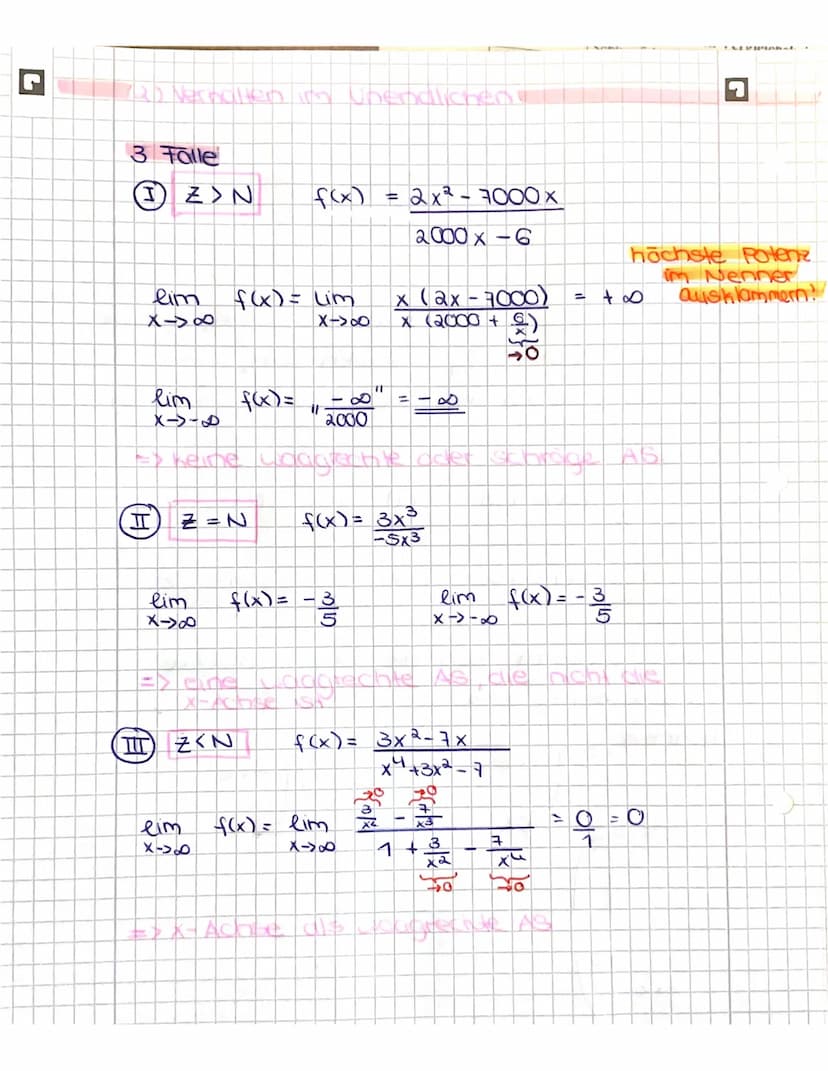 2) Verhalten im Unendlichen
3 Fälle
I Z > N f(x) = (2x² - 7000x) / (2000x - 6)
höchste Potenz
im Nenner
ausklammern!
lim x→∞ f(x) = lim x→∞ x (2x - 7000) / x (2000 + 6/x) = + ∞
→0
lim x→-∞ f(x) = „ -∞ / 2000 " = - ∞
=> keine waagrechte oder schräge AS
II Z = N f(x) = 3x³ / -5x³
lim x→∞ f(x) = - 3/5 lim x→-∞ f(x) = - 3/5
=> eine waagrechte AS, die nicht die
x-Achse ist
III Z < N f(x) = (3x² - 7x) / (x⁴ + 3x² - 7)
→0 →0
lim x→∞ f(x) = lim x→∞ (3/x² - 7/x³) / (1 + 3/x² - 7/x⁴) = 0/1 = 0
→0 →0
=> x-Achse als waagrechte AS